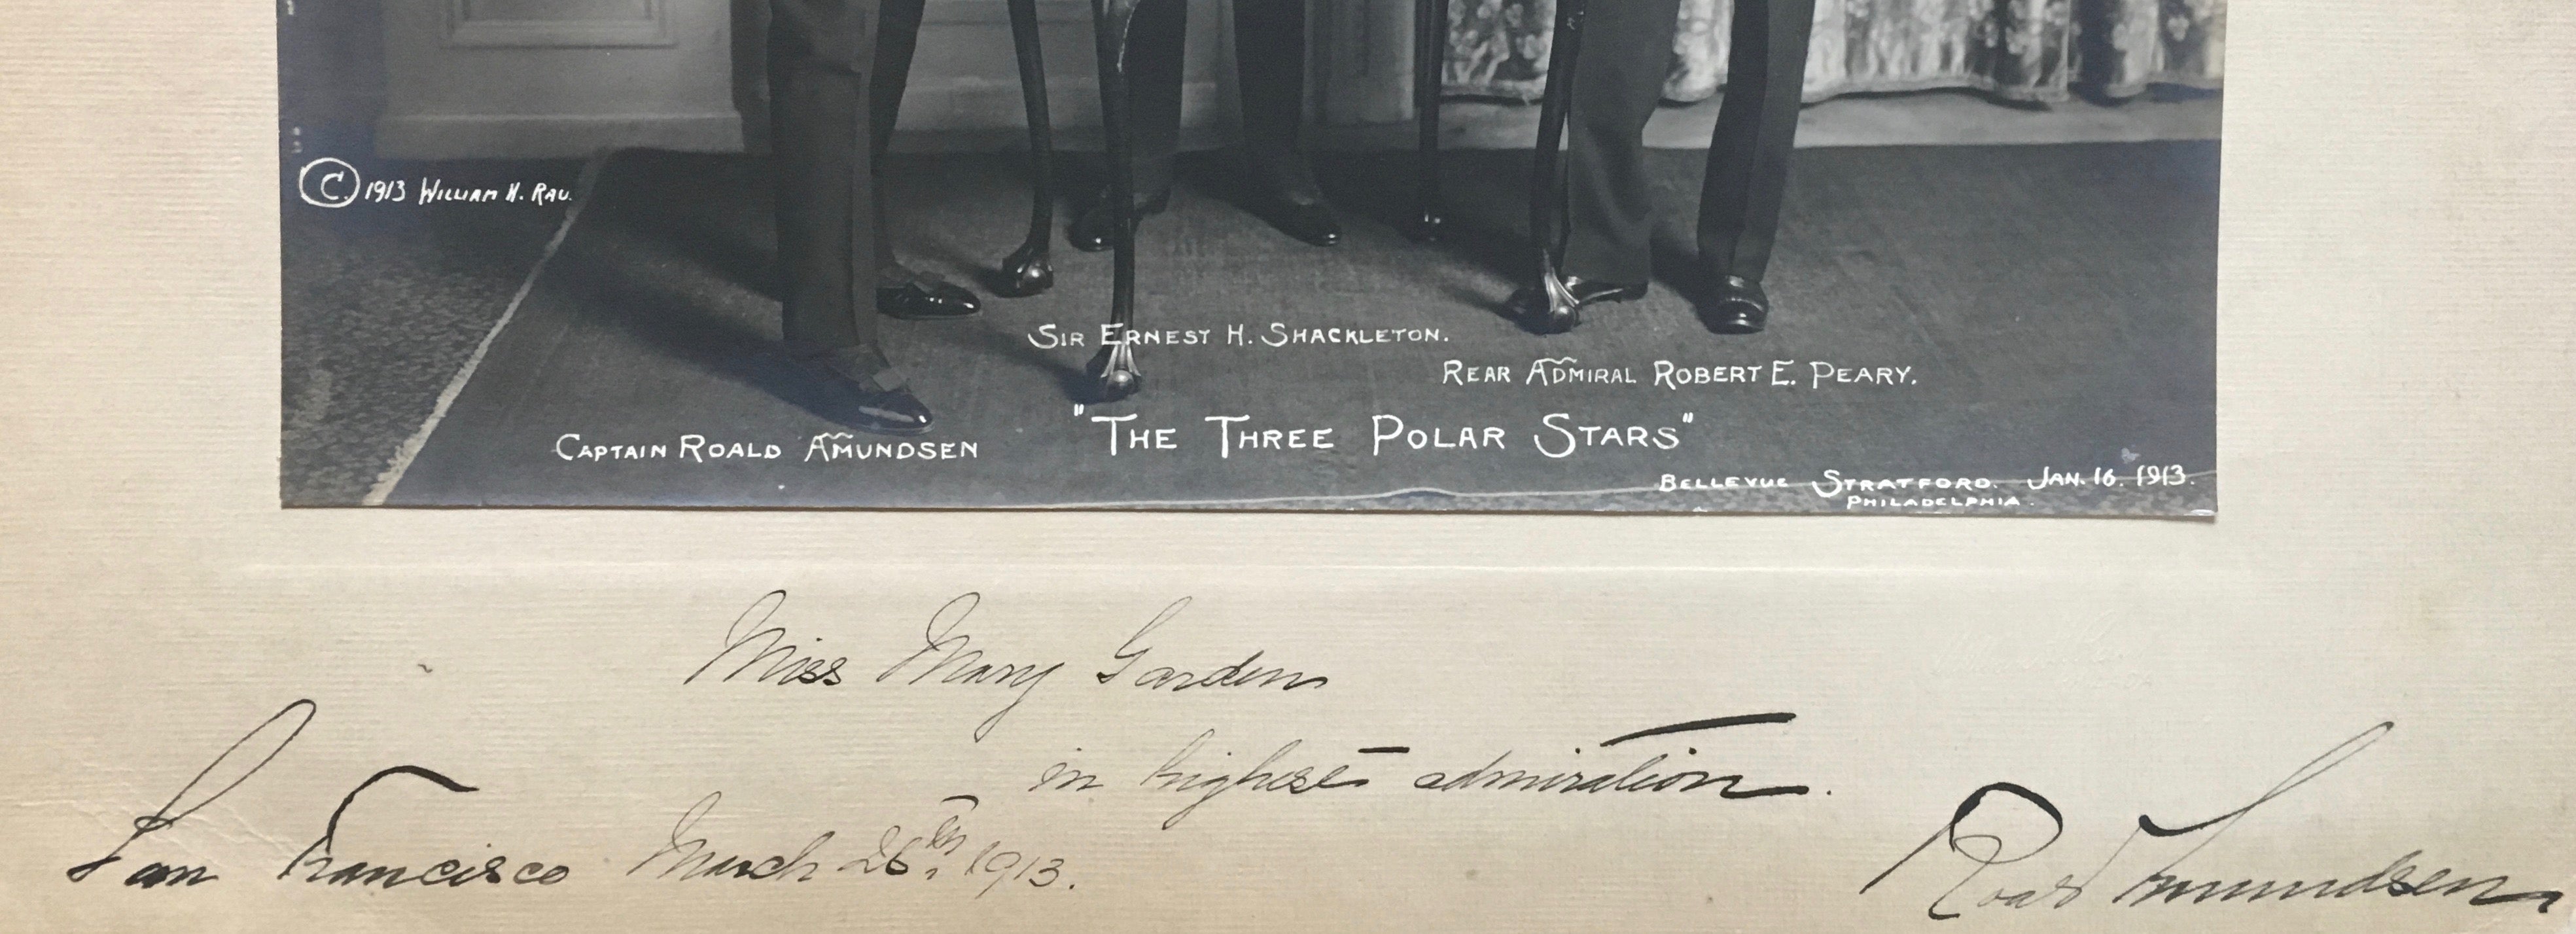 © 1913 WILLIAM H. RAU.
SIR ERNEST H. SHACKLETON.
REAR ADMIRAL ROBERT E. PEARY.
CAPTAIN ROALD AMUNDSEN
"THE THREE POLAR STARS"
BELLEVUE STRATFORD. JAN. 16. 1913.
PHILADELPHIA.
Miss Mary Garden
in highest admiration.
San Francisco March 26th, 1913.
Roald Amundsen